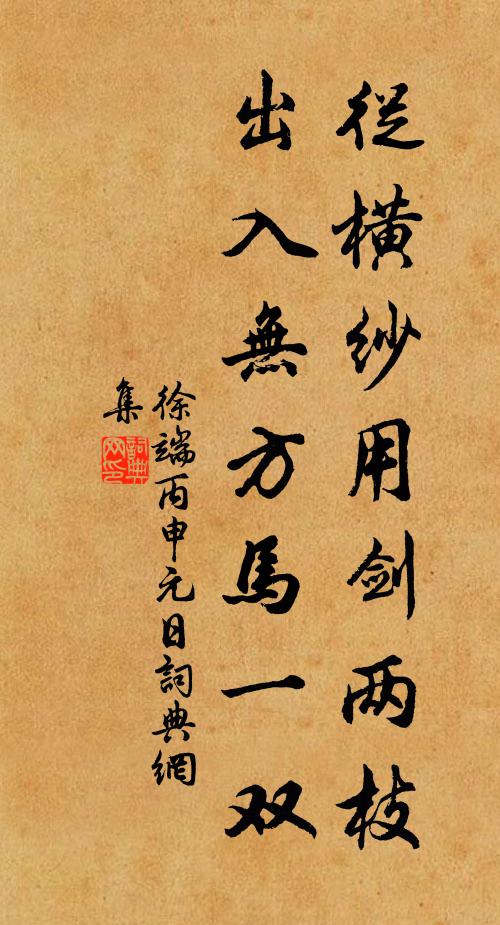 從橫紗用剑两枝
出入無方馬一双
徐端丙申元日詞典網
集
詞典網印